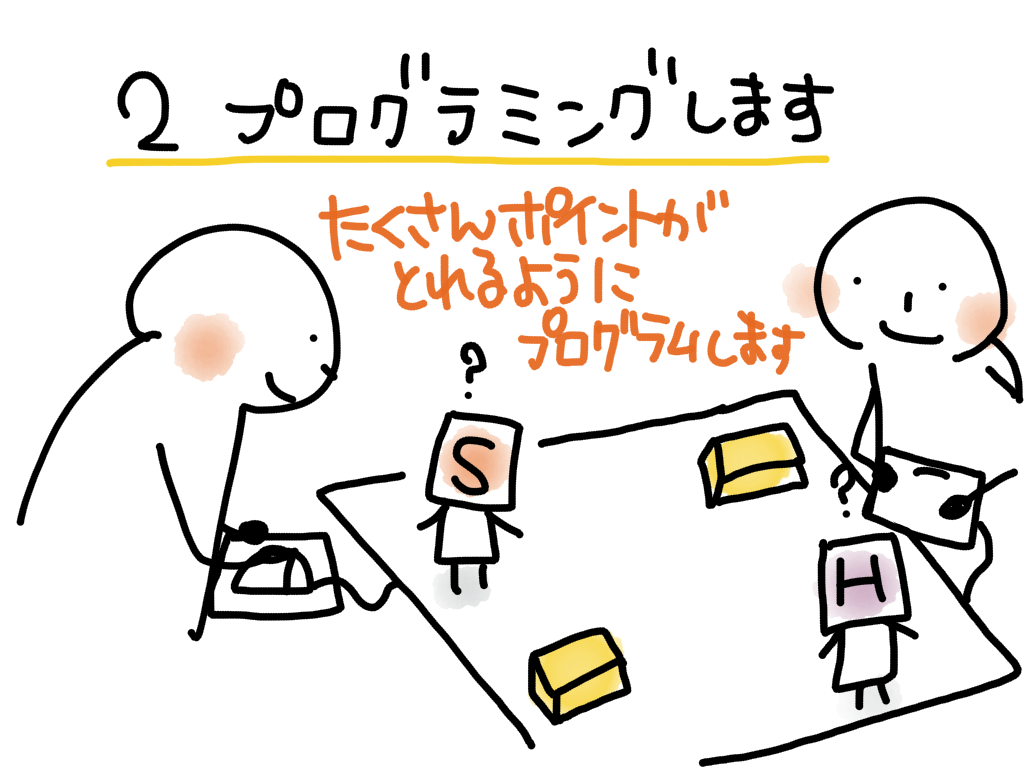 2 プログラミングします
たくさんポイントが
とれるように
プログラムします
?
S
?
H